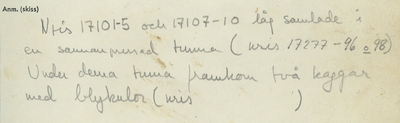 Anm. (skiss)
Nris 17101-5 och 17107-10 låg samlade i
en sammanpressad tunna (nris 17277-96 o 98)
Under denna tunna framkom två kaggar
med blykulor (nris                    )